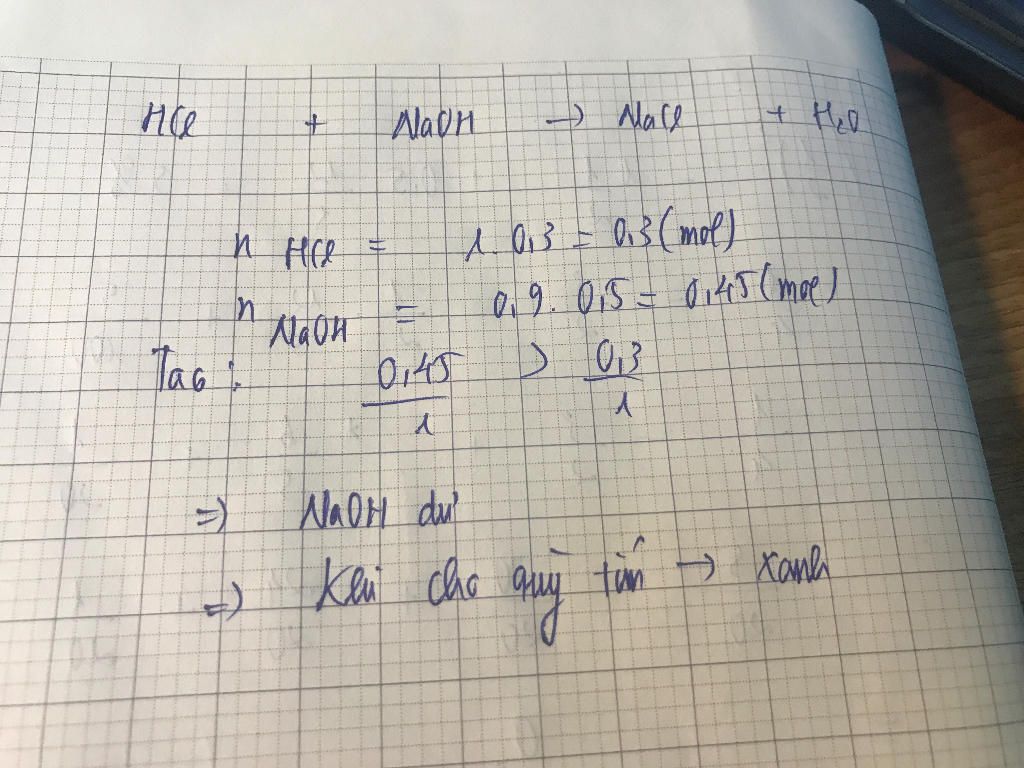 HCl + NaOH → NaCl + H₂O
n HCl = 1. 0,3 = 0,3 (mol)
n NaOH = 0,9. 0,5 = 0,45 (mol)
Ta có: 0,45/1 > 0,3/1
=> NaOH dư
=> Khi cho quỳ tím → xanh